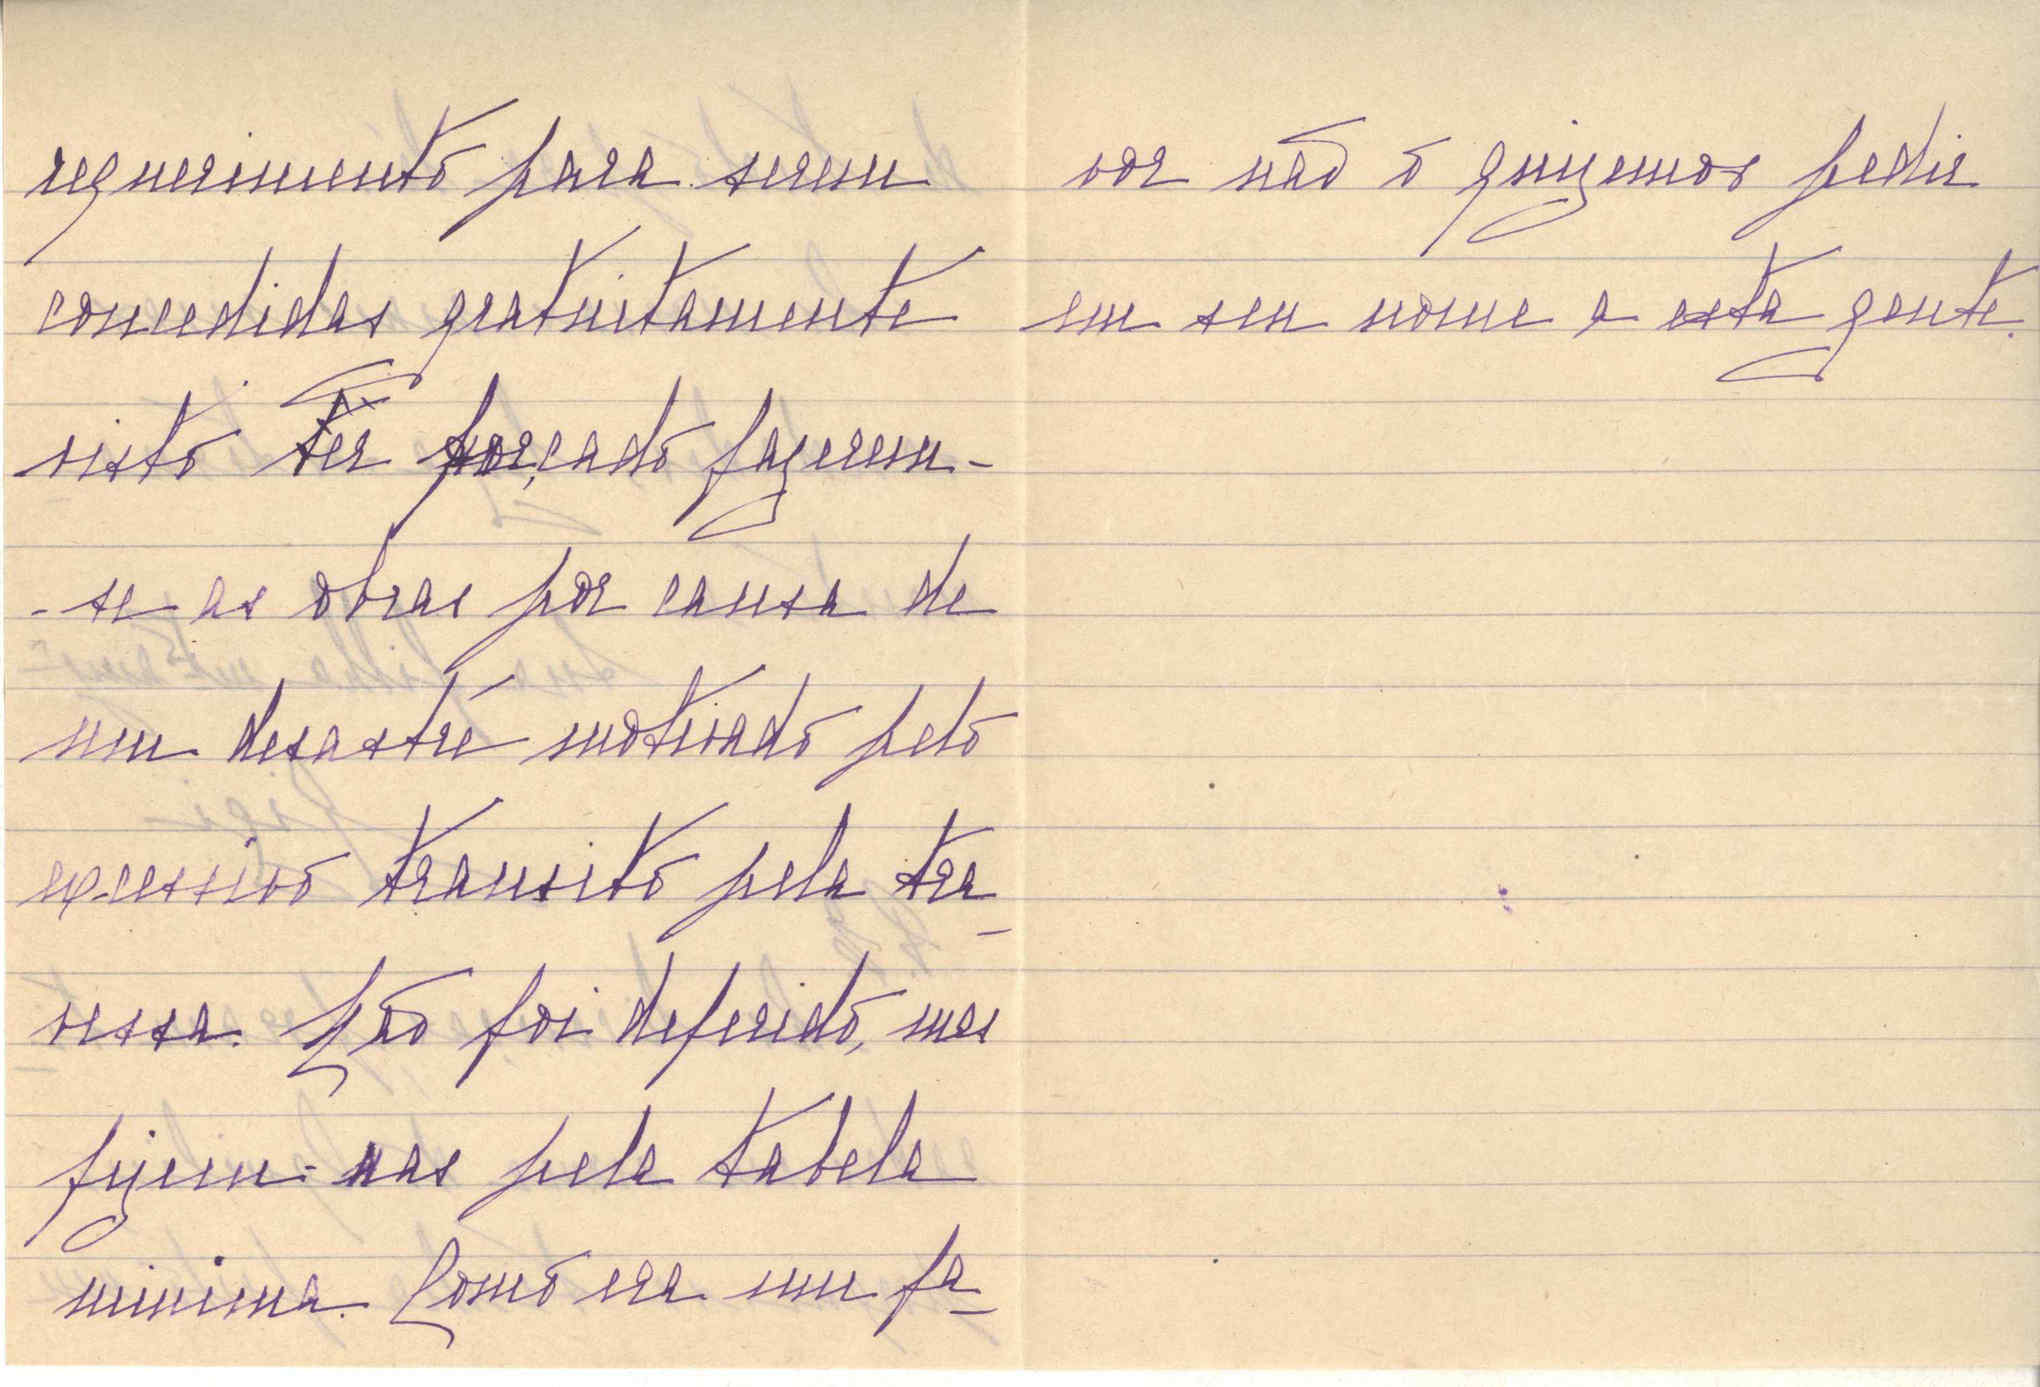 requerimento para serem
concedidas gratuitamente
visto ter forçado fazerem-
-se as obras por causa de
um desastre motivado pelo
excessivo transito pela tra-
vessa. Não foi deferido, mas
fizem-nas pela tabela
minima. Como era um fa-
vor não o quizemos pedir
em seu nome a esta gente.